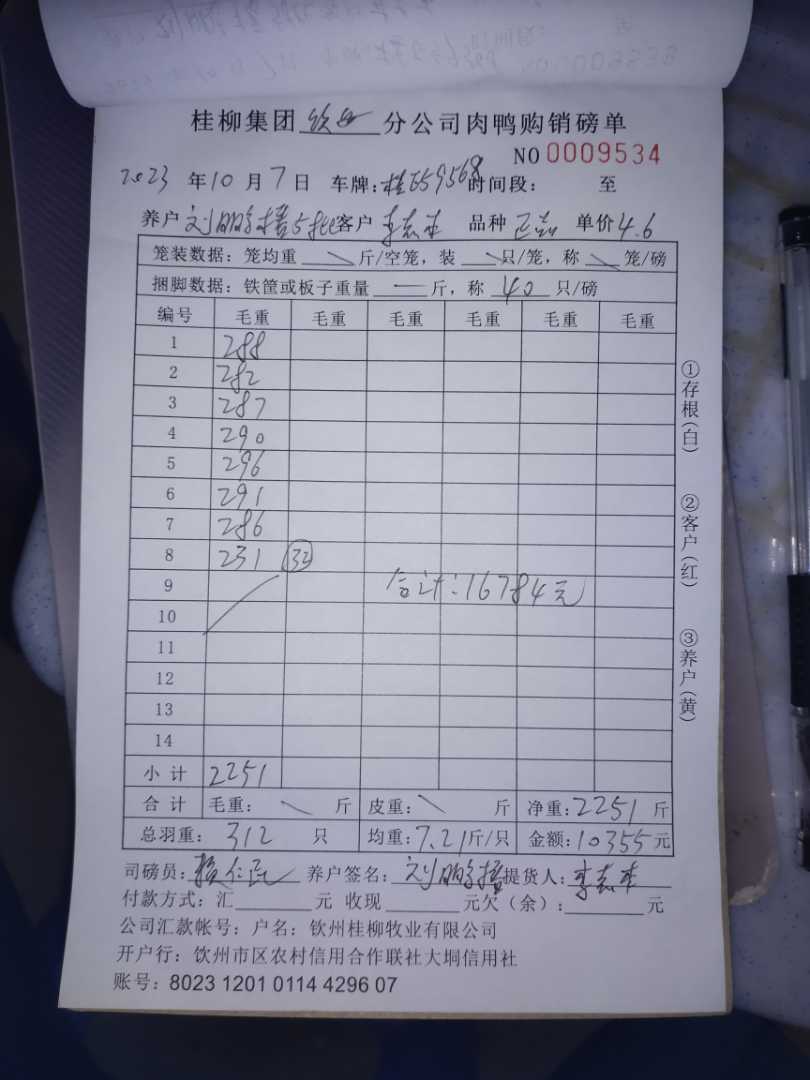 桂柳集团 钦州 分公司肉鸭购销磅单
NO 0009534
2023 年10 月 7 日 车牌:桂E59568 时间段: 至
养户 刘 客户 李 品种 单价4.6
笼装数据:笼均重 斤/空笼,装 只/笼,称 笼/磅
捆脚数据:铁筐或板子重量 一 斤,称 40 只/磅
编号 毛重 毛重 毛重 毛重 毛重 毛重
1 288
2 282
3 287
4 290
5 296
6 291
7 286
8 231 32
9 合计:16784元
10
11
12
13
14
小 计 2251
合 计 毛重: 斤 皮重: 斤 净重:2251 斤
总羽重: 312 只 均重:7.21斤/只 金额:10355元
司磅员: 养户签名:刘 提货人:李
付款方式:汇 元 收现 元欠(余): 元
公司汇款帐号:户名:钦州桂柳牧业有限公司
开户行:钦州市区农村信用合作联社大垌信用社
账号:8023 1201 0114 4296 07
①存根(白) ②客户(红) ③养户(黄)